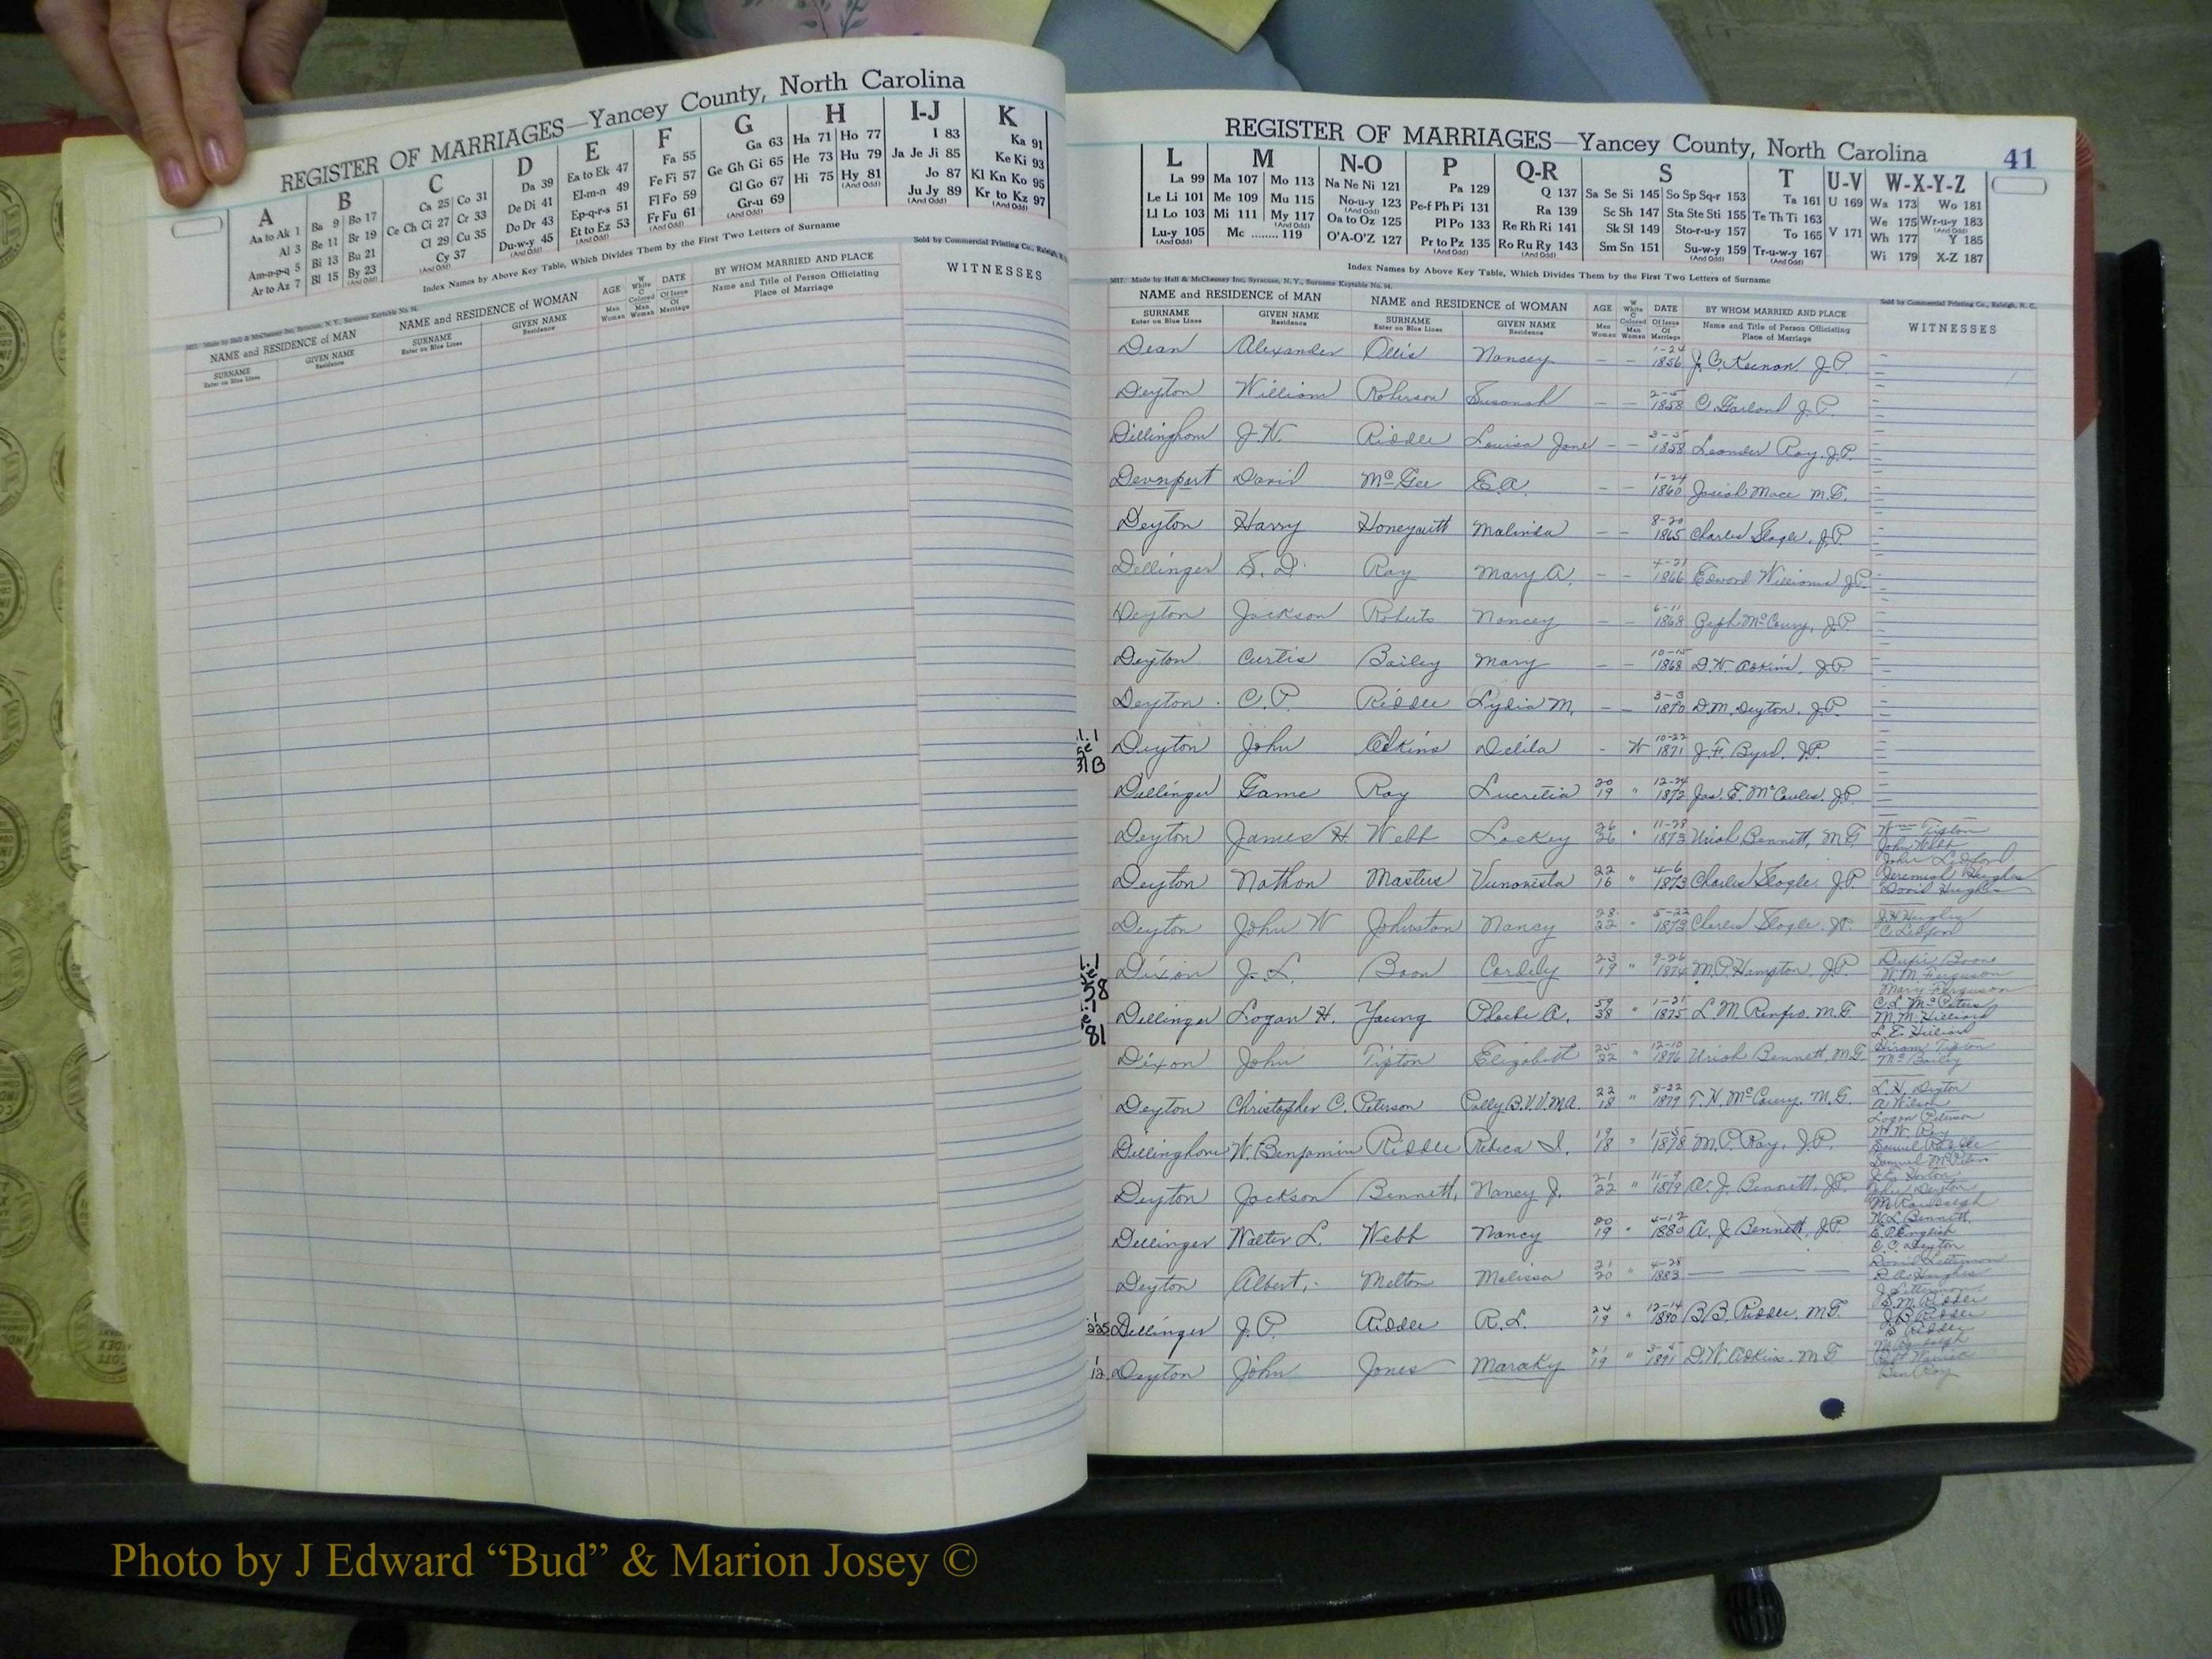 REGISTER OF MARRIAGES—Yancey County, North Carolina
A
Aa to Ak 1
Al 3
Am-n-p-q 5
Ar to Az 7
B
Ba 9 Bo 17
Be 11 Br 19
Bi 13 Bu 21
Bl 15 By 23
(And Odd)
C
Ca 25 Co 31
Ce Ch Ci 27 Cr 33
Cl 29 Cu 35
Cy 37
(And Odd)
D
Da 39
De Di 41
Do Dr 43
Du-w-y 45
(And Odd)
E
Ea to Ek 47
El-m-n 49
Ep-q-r-s 51
Et to Ez 53
(And Odd)
F
Fa 55
Fe Fi 57
Fl Fo 59
Fr Fu 61
(And Odd)
G
Ga 63
Ge Gh Gi 65
Gl Go 67
Gr-u 69
(And Odd)
H
Ha 71 Ho 77
He 73 Hu 79
Hi 75 Hy 81
(And Odd)
I-J
I 83
Ja Je Ji 85
Jo 87
Ju Jy 89
(And Odd)
K
Ka 91
Ke Ki 93
Kl Kn Ko 95
Kr to Kz 97
(And Odd)
Index Names by Above Key Table, Which Divides Them by the First Two Letters of Surname
5017. Made by Hall & McChesney Inc, Syracuse, N. Y., Surname Keytable No. 94.
Sold by Commercial Printing Co., Raleigh, N. C.
NAME and RESIDENCE of MAN NAME and RESIDENCE of WOMAN AGE W White C Colored DATE BY WHOM MARRIED AND PLACE WITNESSES
SURNAME GIVEN NAME SURNAME GIVEN NAME Man Man Of Issue Of Name and Title of Person Officiating
Enter on Blue Lines Residence Enter on Blue Lines Residence Woman Woman Marriage Place of Marriage
REGISTER OF MARRIAGES—Yancey County, North Carolina 41
L
La 99
Le Li 101
Ll Lo 103
Lu-y 105
(And Odd)
M
Ma 107 Mo 113
Me 109 Mu 115
Mi 111 My 117
(And Odd)
Mc ........ 119
N-O
Na Ne Ni 121
No-u-y 123
(And Odd)
Oa to Oz 125
O'A-O'Z 127
P
Pa 129
Pe-f Ph Pi 131
Pl Po 133
Pr to Pz 135
(And Odd)
Q-R
Q 137
Ra 139
Re Rh Ri 141
Ro Ru Ry 143
S
Sa Se Si 145 So Sp Sq-r 153
Sc Sh 147 Sta Ste Sti 155
Sk Sl 149 Sto-r-u-y 157
Sm Sn 151 Su-w-y 159
(And Odd)
T
Ta 161
Te Th Ti 163
To 165
Tr-u-w-y 167
(And Odd)
U-V
U 169
V 171
W-X-Y-Z
Wa 173 Wo 181
We 175 Wr-u-y 183
(And Odd)
Wh 177 Y 185
Wi 179 X-Z 187
Index Names by Above Key Table, Which Divides Them by the First Two Letters of Surname
5017. Made by Hall & McChesney Inc, Syracuse, N. Y., Surname Keytable No. 94.
Sold by Commercial Printing Co., Raleigh, N. C.
NAME and RESIDENCE of MAN NAME and RESIDENCE of WOMAN AGE W White C Colored DATE BY WHOM MARRIED AND PLACE WITNESSES
SURNAME GIVEN NAME SURNAME GIVEN NAME Man Man Of Issue Of Name and Title of Person Officiating
Enter on Blue Lines Residence Enter on Blue Lines Residence Woman Woman Marriage Place of Marriage
Dean Alexander Ollis Nancey – – 1-24 1856 J. C. Keenan J.P.
Deyton William Roberson Susanah – – 2-5 1858 C. Garland J.P.
Dillingham J.W. Riddle Louisa Jane – – 1858 Leander Ray, J.P.
Devnport David McGee E.A. – – 1-24 1860 Josiah Mace M.G.
Deyton Harry Honeycutt Malinda – – 8-20 1865 Charles Slagle, J.P.
Dellinger S. D. Ray Mary A. – – 4-21 1866 Edward Williams J.P.
Deyton Jackson Roberts Nancey – – 6-11 1868 Zeph McCoury, J.P.
Deyton Curtis Bailey Mary – – 10-15 1868 D.W. Adkins, J.P.
Deyton C.P. Riddle Lydia M. – – 3-3 1870 D.M. Deyton, J.P.
Deyton John Adkins Delila - W 10-22 1871 J.F. Byrd, J.P.
Dellinger Game Ray Lucretia 20 19 " 12-24 1872 Jas. E. J.P.
Deyton James H. Webb Lockey 26 26 " 11-28 1873 Uriah Bennett, M.G. Wm Tipton
John Webb
John Ledford
Deyton Nathan Masters 22 16 " 4-6 1873 Charles Slagle, J.P. Jeremiah Hughes
David Hughes
Deyton John W Johnston Nancy 28 22 " 5-22 1873 Charles Slagle, J.P. J.H. Hughes
C. Ledford
Dixon J. L. Boon Cordely 23 19 " 9-26 1874 M.P. Hampton, J.P. Boone
W.M. Ferguson
Mary Ferguson
Dellinger Logan H. Young Phoebe A. 59 38 " 1-21 1875 L.M. Renfro, M.G. C.L. McPeters
M.M. Hilliard
L.E. Hilliard
Dixon John Tipton Elizabeth 25 22 " 12-10 1876 Uriah Bennett, M.G. Hiram Tipton
Bailey
Deyton Christopher C. Peterson Polly B.V.V.M.A. 22 18 " 8-22 1879 T.H. McCoury, M.G. L.H. Deyton
A Wilson
Logan Peterson
Dillingham W. Benjamin Riddle Rebeca I. 19 18 " 1878 M.P. Ray, J.P. W.W. Ray
Samuel Riddle
Samuel McPeters
Deyton Jackson Bennett, Nancy J. 21 22 " 11-9 1879 A. J. Bennett, J.P. J.E. Horton
John Deyton
M Randolph
Dellinger Walter L. Webb Nancy 20 19 " 4-12 1880 A. J Bennett, J.P. W.L. Bennett
E.P. English
C.C. Deyton
Deyton Albert, Melton Melissa 21 20 " 4-28 1883 — — — David
R.A. Hughes
225 Dellinger J.P. Riddle R.L. 24 19 " 12-14 1890 B.B. Riddle, M.G. S.M. Riddle
J.B. Riddle
S Riddle
12 Deyton John Jones Maraky 21 19 " 1891 D.W. Adkins, M.G. M Randolph
Ben Ray
Photo by J Edward “Bud” & Marion Josey ©